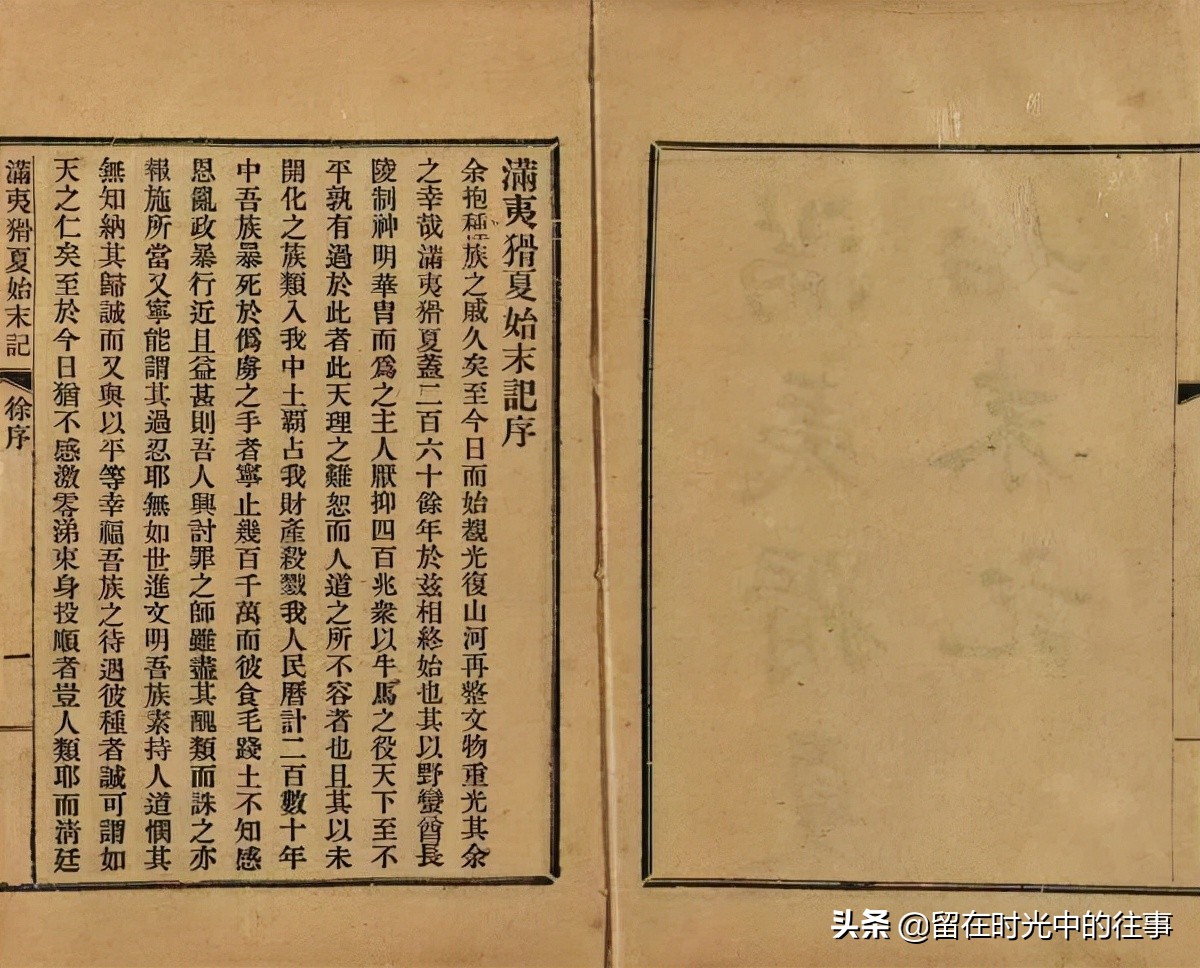 滿夷猾夏始末記序
余抱種族之戚久矣至今日而始覩光復山河再整文物重光其余
之幸哉滿夷猾夏蓋二百六十餘年於茲相終始也其以野蠻酋長
陵制神明華胄而爲之主人厭抑四百兆衆以牛馬之役天下至不
平孰有過於此者此天理之難恕而人道之所不容者也且其以未
開化之族類入我中土霸占我財產殺戮我人民曆計二百數十年
中吾族暴死於僞虜之手者寧止幾百千萬而彼食毛踐土不知感
恩亂政暴行近且益甚則吾人興討罪之師雖盡其醜類而誅之亦
報施所當又寧能謂其過忍耶無如世進文明吾族素持人道憫其
無知納其歸誠而又與以平等幸福吾族之待遇彼種者誠可謂如
天之仁矣至於今日猶不感激零涕束身投順者豈人類耶而淸廷
滿夷猾夏始末記
徐序
一
头条 @留在时光中的往事